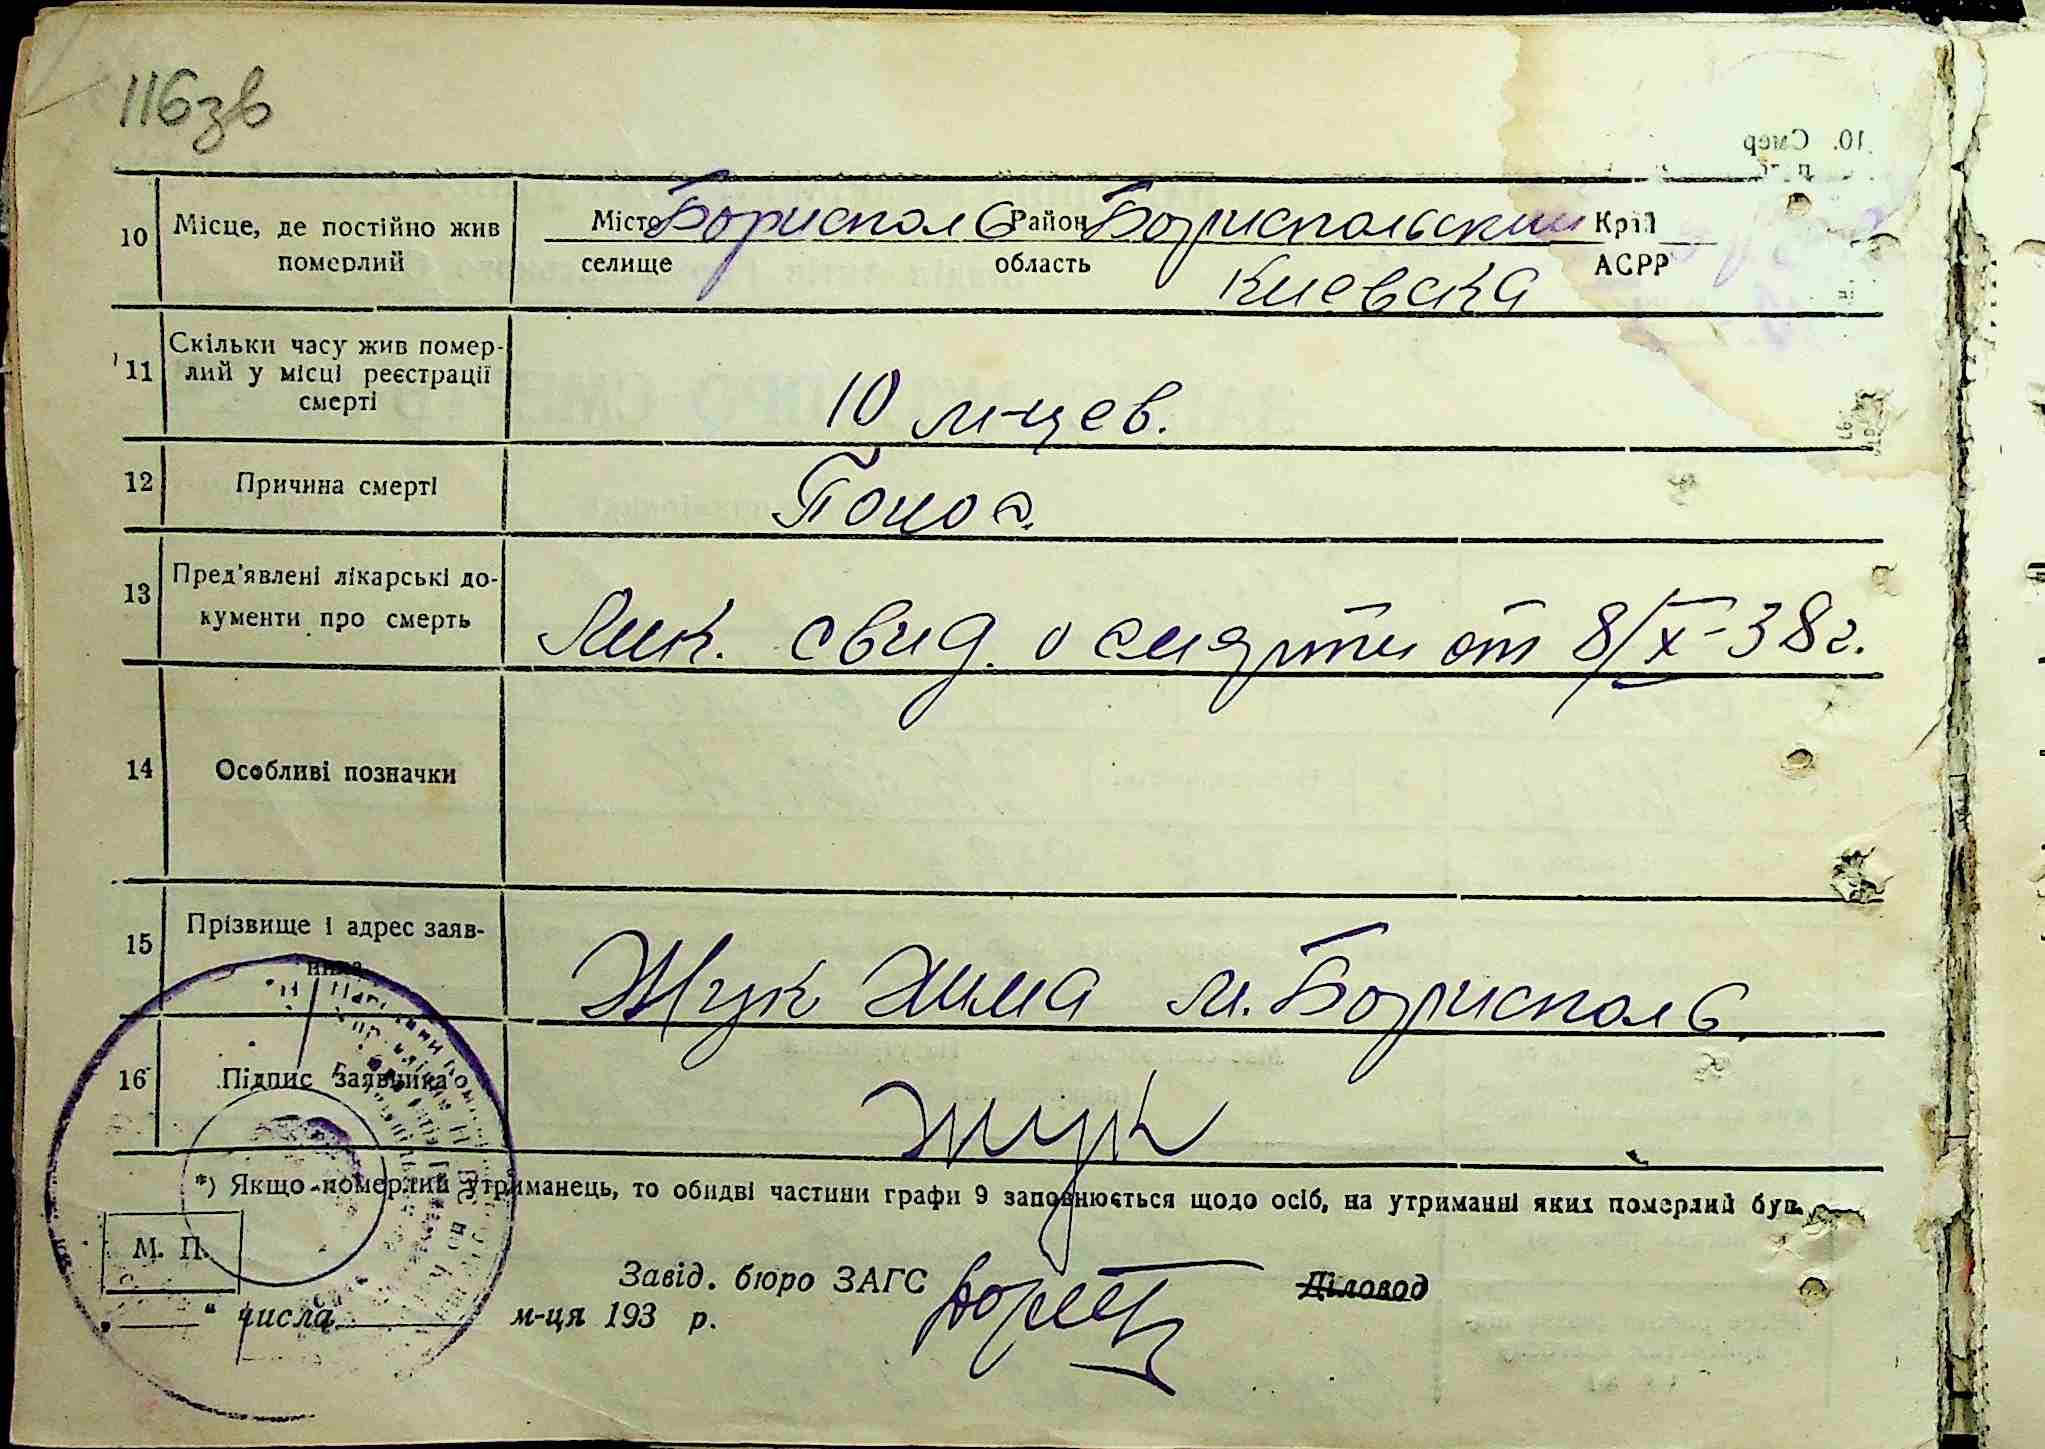 116зв
10 Місце, де постійно жив померлий
Місто Борисполь Район Бориспольский Край
селище область Киевска АСРР
11 Скільки часу жив помер-
лий у місці реєстрації
смерті
10 м-цев.
12 Причина смерті Понос.
13 Пред'явлені лікарські до-
кументи про смерть
Лик. свид. о смерти от 8/X-38г.
14 Особливі позначки
15 Прізвище і адрес заяв-
ника
Жук Хима м. Борисполь
16 Підпис заявника Жук
*) Якщо померлий утриманець, то обидві частини графи 9 заповнюється щодо осіб, на утриманні яких померлий був.
М. П.
Завід. бюро ЗАГС Діловод
„ “ числа м-ця 193 р.